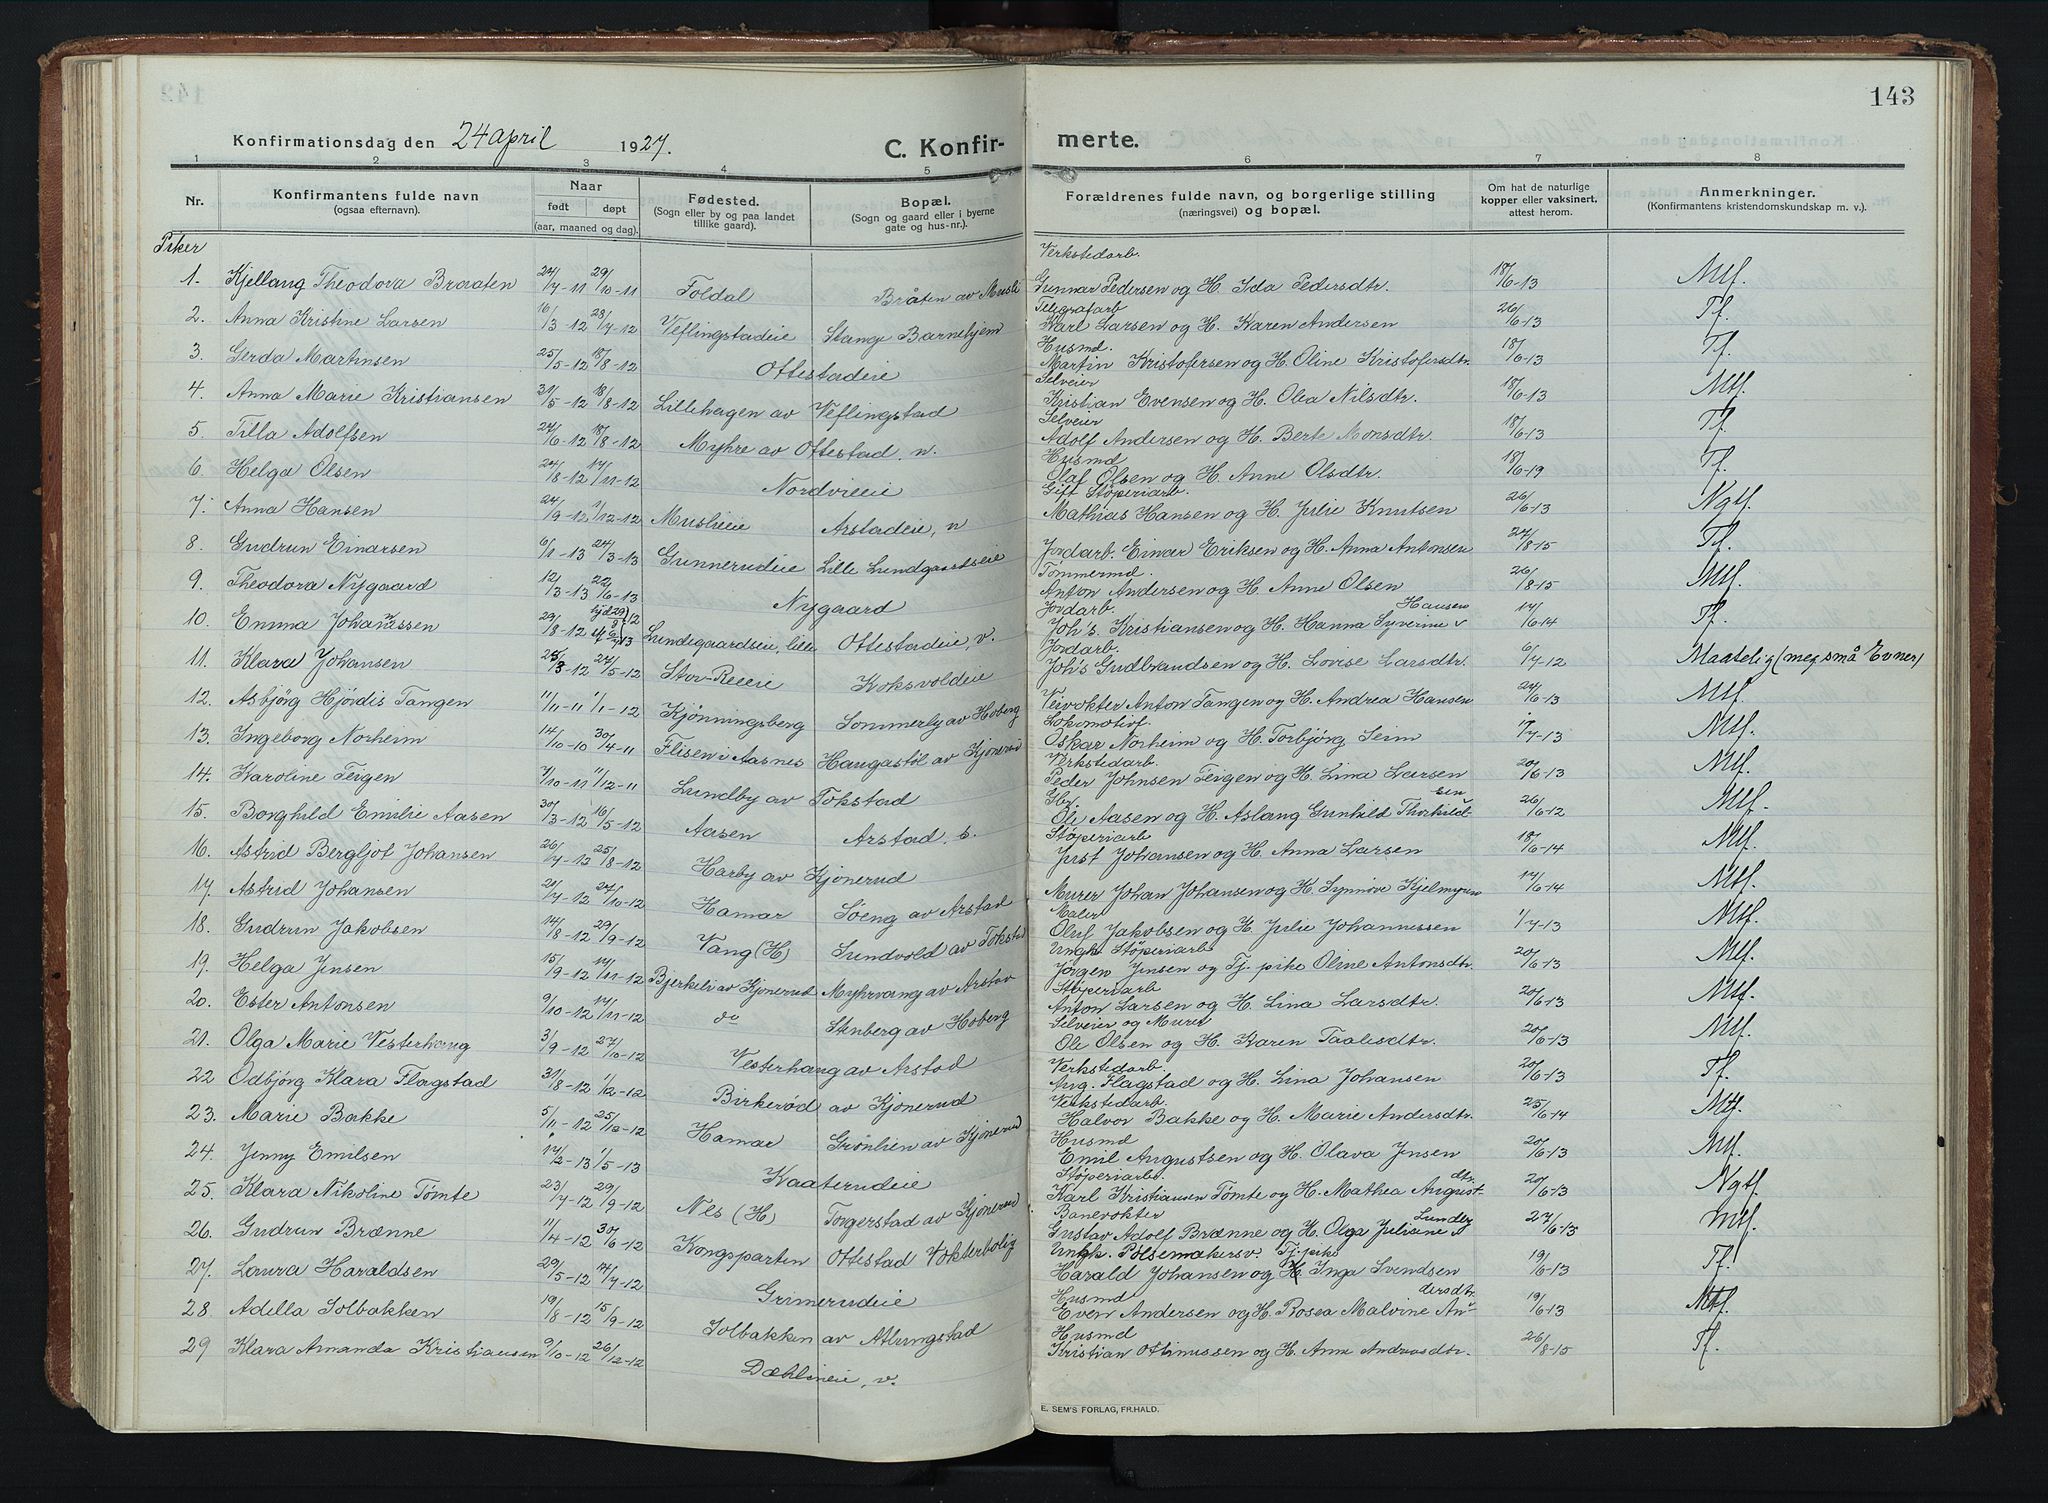 143
Konfirmationsdag den 24 april 1927.
C. Konfirmerte.
1 2 3 4 5 6 7 8
Nr. Konfirmantens fulde navn (ogsaa efternavn). Naar født døpt (aar, maaned og dag). Fødested. (Sogn eller by og paa landet tillike gaard). Bopæl. (Sogn og gaard eller i byerne gate og hus-nr.). Forældrenes fulde navn, og borgerlige stilling (næringsvei) og bopæl. Om hat de naturlige kopper eller vaksinert, attest herom. Anmerkninger. (Konfirmantens kristendomskundskap m. v.).
Piker
1. Kjellaug Theodora Braaten 24/7-11 29/10-11 Foldal Bråten av Musli Verkstedarb. Gunnar Pedersen og H. Ida Pedersdtr. 18/6-13 Mtf.
2. Anna Kristine Larsen 16/3-12 28/7-12 Veflingstadeie Stange Barnehjem Telegrafarb Karl Larsen og H. Karen Andersen 26/6-13 Tf.
3. Gerda Martinsen 25/5-12 18/8-12 Ottestadeie Husmd. Martin Kristofersen og H. Oline Kristofersdtr. 18/6-13 Tf.
4. Anna Marie Kristiansen 31/5-12 18/8-12 Lillehagen av Veflingstad Selveier Kristian Evensen og H. Olea Nilsdtr. 18/6-13 Mtf.
5. Tilla Adolfsen 24/6-12 18/8-12 Myhre av Ottestad, n. Selveier Adolf Andersen og H. Berte Monsdtr. 18/6-13 Tf.
6. Helga Olsen 24/8-12 17/11-12 Nordvieeie Husmd Olaf Olsen og H. Anne Olsdtr. 18/6-19 Tf.
7. Anna Hansen 24/9-12 1/12-12 Muslieie Arstadeie, n Gift Støperiarb. Mathias Hansen og H. Julie Knutsen 26/6-13 Ngtf.
8. Gudrun Einarsen 6/1-13 24/3-13 Gunnerudeie Lille Lundgaardseie Jordarb. Einar Eriksen og H. Anna Antonsen 27/8-15 Tf.
9. Theodora Nygaard 12/3-13 22/6-13 Nygaard Tømmermd. Anton Andersen og H. Anne Olsen 26/8-15 Mtf.
10. Emma Johannessen 29/8-12 Lundsgaardseie, lille Ottestadeie, v. Jordarb. Joh's. Kristiansen og H. Hanna Syverine Hansen 17/6-14 Tf.
11. Klara Johansen 25/3-12 27/5-12 Stor-Reeie Koksvoldeie Jordarb. Joh's Gudbrandsen og H. Lovise Larsdtr. 6/7-12 Maatelig (meg. små Evner)
12. Asbjørg Hjørdis Tangen 11/11-11 1/1-12 Kjønningsberg Sommerly av Hoberg Veivokter Anton Tangen og H. Andrea Hansen 24/6-13 Mtf.
13. Ingeborg Norheim 14/10-10 30/4-11 Flisen i Aasnes Haugastøl av Kjonerud Lokomotivf. Oskar Norheim og H. Torbjørg Seim 17/7-13 Mtf.
14. Karoline Teigen 7/10-11 11/12-11 Lundby av Tokstad Verkstedarb. Peder Johnsen Teigen og H. Lina Larsen 20/6-13 Mtf.
15. Borghild Emilie Aasen 30/3-12 16/5-12 Aasen Arstad, s. Gbr. Ole Aasen og H. Aslaug Gunhild Thorkildsen 26/6-12 Mtf.
16. Astrid Bergljot Johansen 26/7-13 25/8-12 Harby av Kjonerud Støperiarb Just Johansen og H. Anna Larsen 18/6-14 Mtf.
17. Astrid Johansen 21/7-12 27/10-12 Hamar Soeng av Arstad Murer Johan Johansen og H. Synnøve Kjelmyren 17/6-14 Mtf.
18. Gudrun Jakobsen 14/8-12 29/9-12 Vang (H) Sundvold av Tokstad Maler Oluf Jakobsen og H. Julie Johannessen 1/7-13 Mtf.
19. Helga Jensen 15/9-12 17/11-12 Bjerkeli av Kjonerud Myhrvang av Arstad Ungk. Støperiarb Jørgen Jensen og Tj. pike Oline Antonsdtr. 20/6-13 Mtf.
20. Ester Antonsen 9/10-12 17/11-12 do Stenberg av Hoberg Støperiarb Anton Larsen og H. Lina Larsdtr. 20/6-13 Mtf.
21. Olga Marie Vesterhaug 3/9-12 27/10-12 Vesterhaug av Arstad Selveier og Murer Ole Olsen og H. Karen Taalesdtr. 20/6-13 Mtf.
22 Odbjørg Klara Flagstad 31/8-12 1/12-12 Birkerød av Kjonerud Verkstedarb. Aug. Flagstad og H. Lina Johansen 20/6-13 Tf.
23. Marie Bakke 5/11-12 25/12-12 Hamar Grønlien av Kjonerud Verkstedarb. Halvor Bakke og H. Marie Andersdtr. 25/6-14 Mtf.
24. Jenny Emilsen 17/2-13 1/5-13 Kaaterudeie Husmd Emil Augustsen og H. Olava Jensen 20/6-13 Mtf.
25. Klara Nikoline Tømte 23/7-12 29/9-12 Nes (H) Torgerstad av Kjonerud Støperiarb. Karl Kristiansen Tømte og H. Mathea Augustdtr. 20/6-13 Ngtf.
26. Gudrun Brænne 11/4-12 30/6-12 Kongsparten Ottestad Vokterbolig Banevokter Gustav Adolf Brænne og H. Olga Juliane Lundby 27/6-13 Mtf.
27. Laura Haraldsen 29/5-12 14/7-12 Grimerudeie Ungk. Pølsemakersv. Tj. pike Harald Johansen og H Inga Svendsen 19/6-13 Tf.
28. Adella Solbakken 19/8-12 15/9-12 Solbakken av Atlungstad Husmd Even Andersen og H. Rosea Malvine Andersdtr. 19/6-13 Mtf.
29 Klara Amanda Kristiansen 9/10-12 26/12-12 Dæhlineie, v. Husmd Kristian Othinussen og H. Anne Andreasdtr. 26/8-15 Tf.
E. SEM'S FORLAG, FR.HALD.